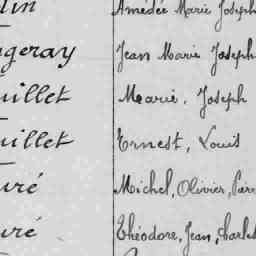 lin Amédée Marie Joseph
geray Jean Marie Joseph
uillet Marie, Joseph
uillet Ernest, Louis
uré Michel, Olivier, Pierr
uré Théodore, Jean, Charles